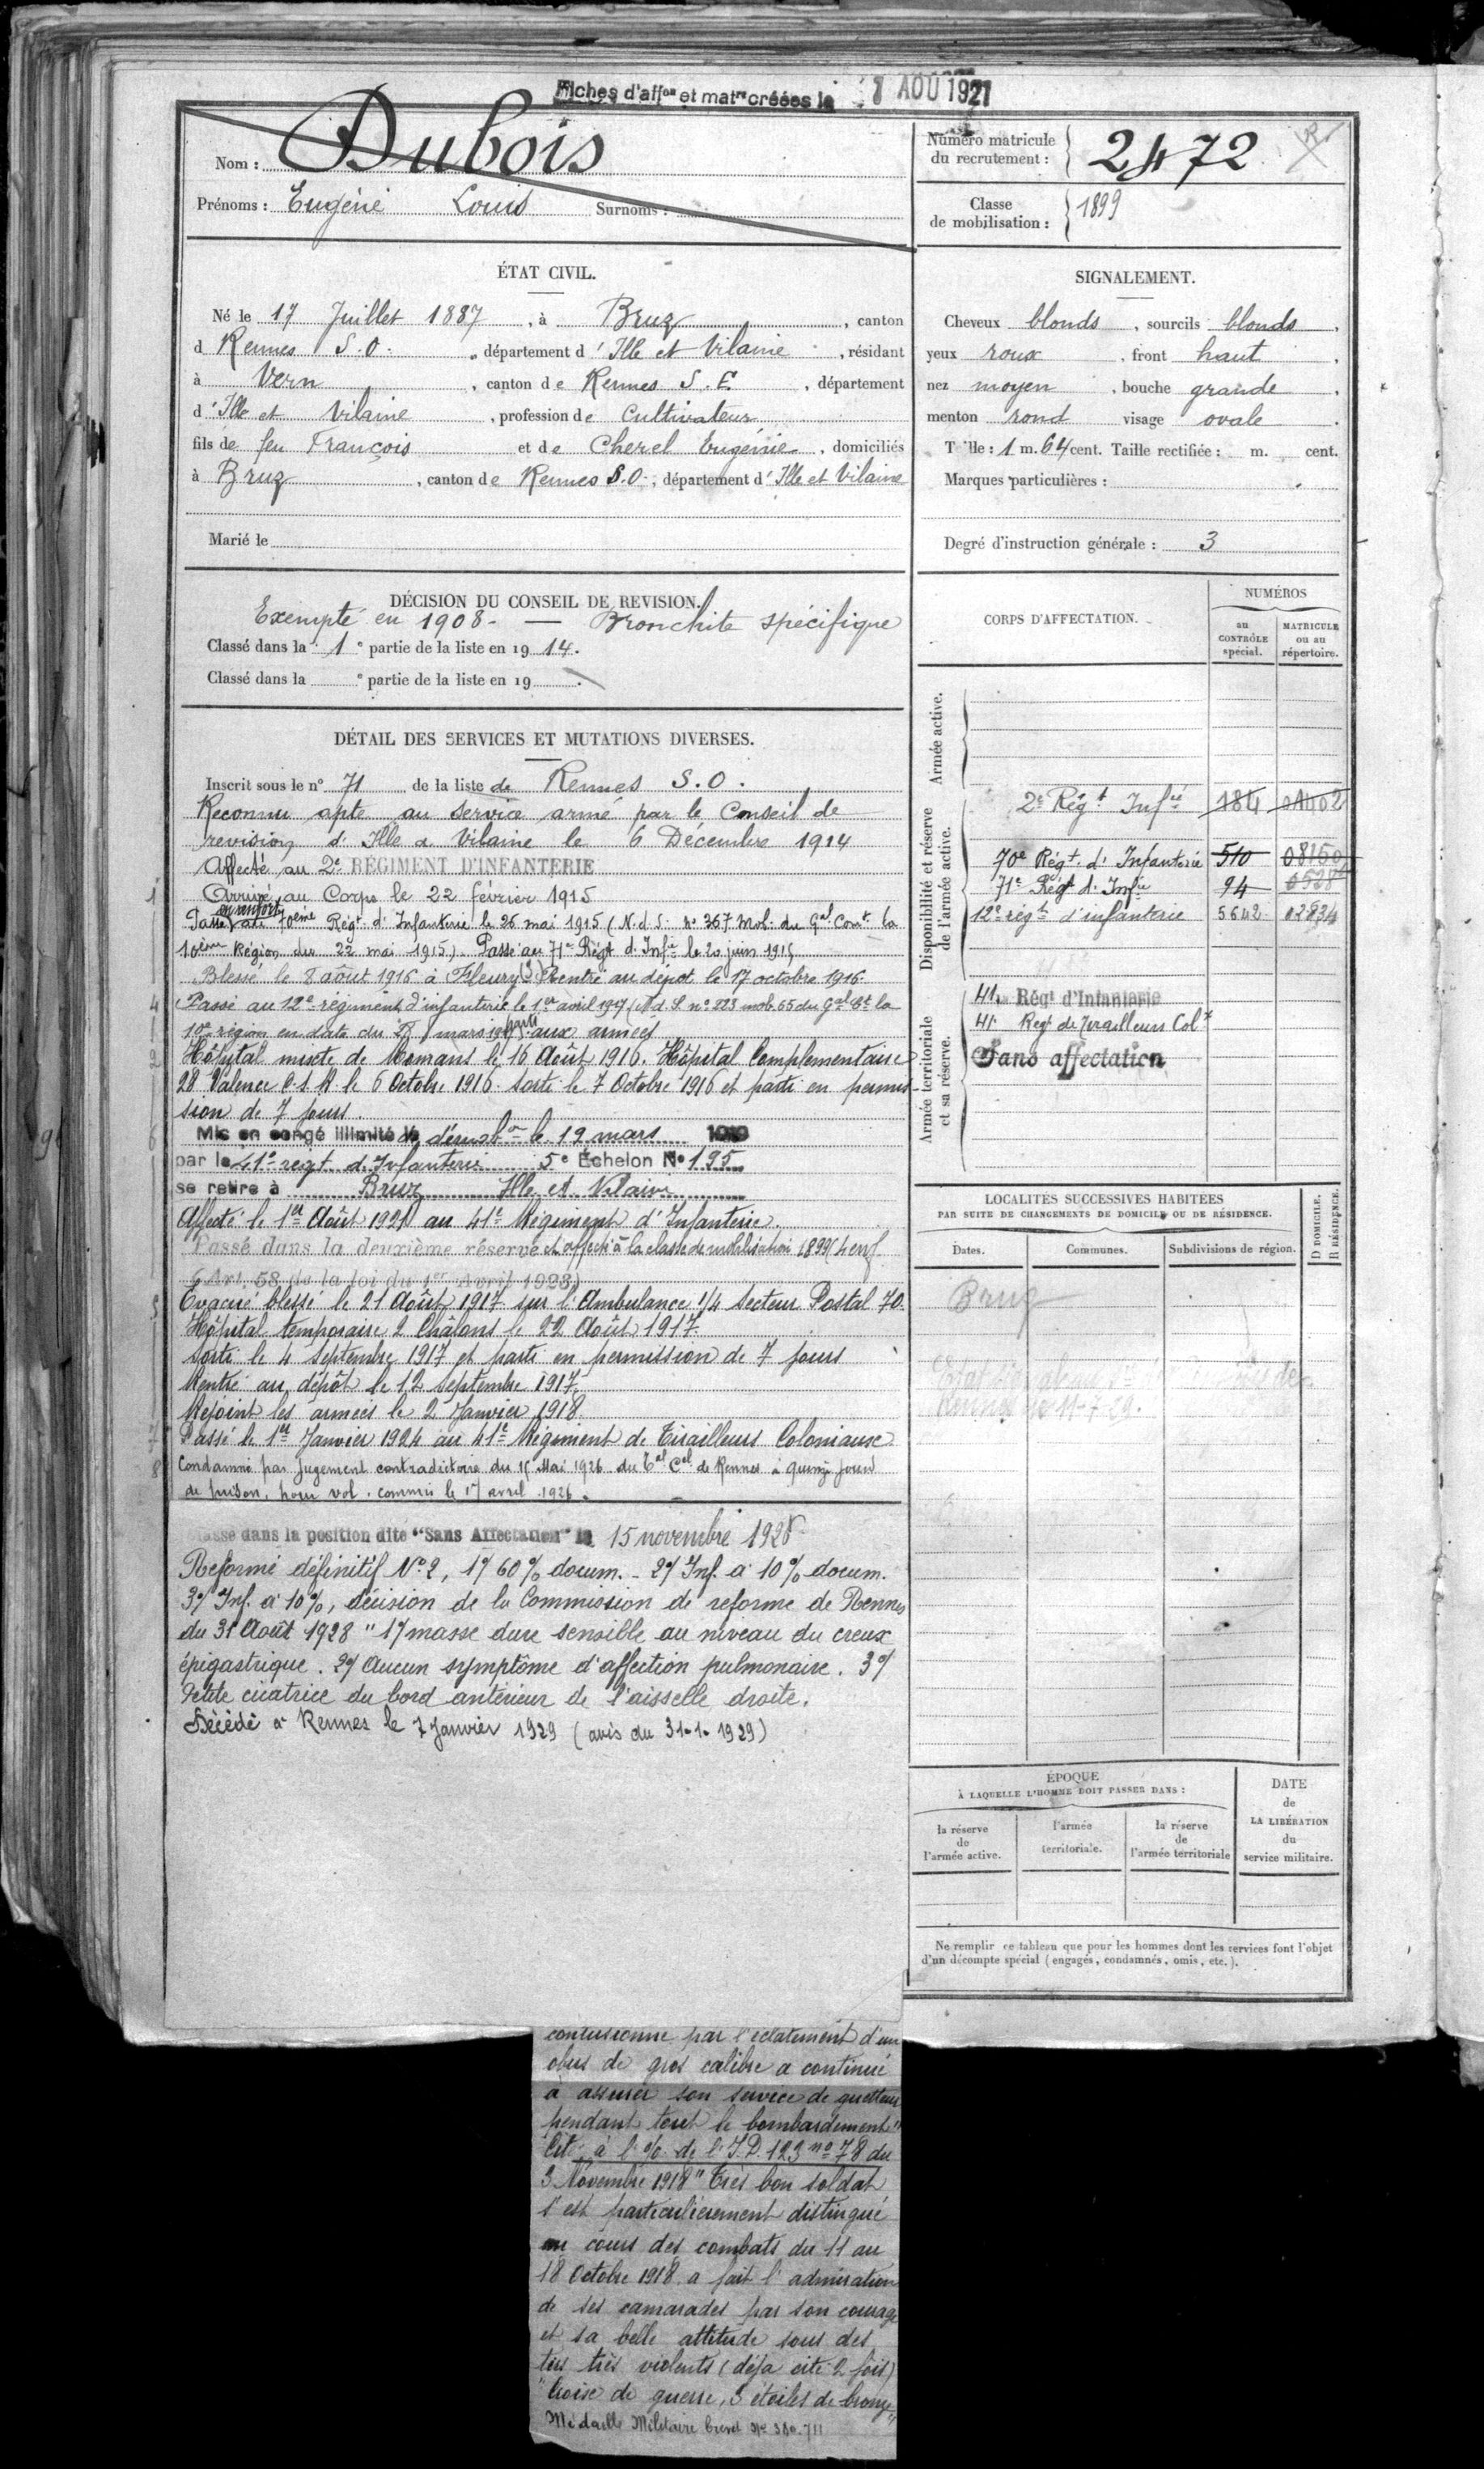 Fiches d'affon et matre créées le 8 AOU 1921
Nom : Dubois
Prénoms : Eugène Louis Surnoms :
Numéro matricule du recrutement : 2472
R
Classe de mobilisation : 1899
ÉTAT CIVIL.
Né le 17 Juillet 1887, à Bruz, canton
d Rennes S.O., département d'Ille et Vilaine, résidant
à Vern, canton de Rennes S.E, département
d'Ille et Vilaine, profession de Cultivateur
fils de feu François et de Cherel Eugénie, domiciliés
à Bruz, canton de Rennes S.O., département d'Ille et Vilaine
Marié le
SIGNALEMENT.
Cheveux blonds, sourcils blonds,
yeux roux, front haut,
nez moyen, bouche grande,
menton rond visage ovale.
Taille : 1 m. 64 cent. Taille rectifiée : m. cent.
Marques particulières :
Degré d'instruction générale : 3
DÉCISION DU CONSEIL DE REVISION.
Exempté en 1908 - — Bronchite spécifique
Classé dans la 1e partie de la liste en 1914.
Classé dans la e partie de la liste en 19 .
DÉTAIL DES SERVICES ET MUTATIONS DIVERSES.
Inscrit sous le n° 71 de la liste de Rennes S.O.
Reconnu apte au service armé par le Conseil de
revision d'Ille & Vilaine le 6 Décembre 1914
Affecté au 2e RÉGIMENT D'INFANTERIE
1 Arrivé au Corps le 22 février 1915
en renfort
Passé au 70ème Régt d'Infanterie le 26 mai 1915 (N.d.S. n° 367 Mob. du Gal Comt la
10ème Région du 22 mai 1915). Passé au 71e Régt d'Infie le 20 juin 1915
Blessé le 8 août 1916 à Fleury (3) Rentré au dépot le 17 octobre 1916
4 Passé au 12e régiment d'infanterie le 1er avril 1917 (N.d.S. n° 223 mob. 65 du Gal Ct la
10e région en date du mars 1917 parti aux armées
2 Hôpital mixte de Romans le 16 Août 1916. Hôpital Complementaire
28 Valence C.S.R. le 6 Octobre 1916. Sorti le 7 Octobre 1916 et parti en permis-
sion de 7 jours.
6 Mis en congé illimité de démobon le 19 mars 1919
par le 41e regt d'Infanterie 5e Échelon N° 195
se retire à Bruz Ille et Vilaine
Affecté le 1er Août 1921 au 41e Régiment d'Infanterie.
Passé dans la deuxième réserve et affecté à la classe de mobilisation 1899 (4 enf
(Art. 58 de la loi du 1er Avril 1923)
5 Evacué blessé le 21 Août 1917 sur l'Ambulance 1/4 Secteur Postal 70.
Hôpital temporaire 2 Châlons le 22 Août 1917.
Sorti le 4 Septembre 1917 et parti en permission de 7 jours
Rentré au dépôt le 12 Septembre 1917.
Rejoint les armées le 2 Janvier 1918
7 Passé le 1er Janvier 1924 au 41e Régiment de Tirailleurs Coloniaux.
8 Condamné par jugement contradictoire du 15 Mai 1926 du Tal Cel de Rennes à quinze jours
de prison, pour vol, commis le 17 avril 1926.
Passé dans la position dite "Sans Affectation" le 15 novembre 1928
Reformé définitif N° 2, 1°/ 60% docum. - 2°/ Inf. à 10% docum.
3°/ Inf. à 10%, décision de la Commission de reforme de Rennes
du 31 Août 1928 "1°/ masse dure sensible au niveau du creux
épigastrique. 2°/ Aucun symptôme d'affection pulmonaire. 3°/
Petite cicatrice du bord antérieur de l'aisselle droite.
Décédé à Rennes le 7 Janvier 1929 (avis du 31-1-1929)
CORPS D'AFFECTATION.
NUMÉROS
au CONTRÔLE spécial.
MATRICULE ou au répertoire.
Armée active.
Disponibilité et réserve de l'armée active.
2e Régt Infie 184
70e Régt d'Infanterie 510 08150
71e Régt d'Infie 94
12e régt d'infanterie 5642 02834
Armée territoriale et sa réserve.
41e Régt d'Infanterie
41e Regt de Tirailleurs Colx
Sans affectation
LOCALITÉS SUCCESSIVES HABITÉES
PAR SUITE DE CHANGEMENTS DE DOMICILE OU DE RÉSIDENCE.
Dates.
Communes.
Subdivisions de région.
D DOMICILE.
R RÉSIDENCE.
Bruz
11-7-29.
ÉPOQUE
À LAQUELLE L'HOMME DOIT PASSER DANS :
la réserve de l'armée active.
l'armée territoriale.
la réserve de l'armée territoriale
DATE de LA LIBÉRATION du service militaire.
Ne remplir ce tableau que pour les hommes dont les services font l'objet
d'un décompte spécial (engagés, condamnés, omis, etc.).
contusionné par l'éclatement d'un
obus de gros calibre a continué
à assurer son service de guetteur
pendant tout le bombardement"
Cit. à l'o/o de l'I.D. 123 n° 78 du
3 Novembre 1918 "Très bon soldat
s'est particulièrement distingué
au cours des combats du 11 au
18 Octobre 1918, a fait l'admiration
de ses camarades par son courage
et sa belle attitude sous des
tirs très violents (déjà cité 2 fois)
"Croix de guerre, 3 étoiles de bronze"
Médaille Militaire brevet N° 380.711